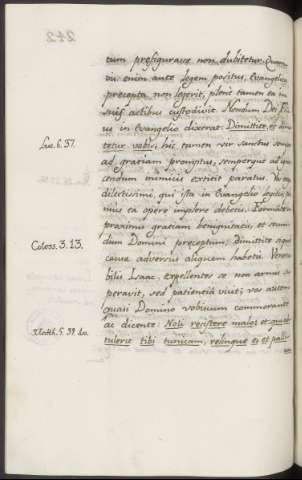 242
tum prefigurare non dubitetur. Quam
vis enim ante legem positus, Evangelica
precepta non legerit, plene tamen ea in
suis actibus custodivit. Nondum Dei Fili
us in evangelio dixerat: Dimittite, et dimi
Luc. 6. 37.
tetur vobis, hic tamen vir sanctus semper
ad gratiam promptus, semperque ad
cendum inimicis extitit paratus. Vos
dilectissimi, qui ista in Evangelio
mus ea opere implere debetis.
proximis gratiam benignitatis, et secun
Coloss. 3. 13.
dum Domini preceptum, dimittite si quid
cause adversus aliquem habetis. Venera
bilis Isaac, expellentes se non armis su
peravit, sed patientia vicit; vos autem
Domino vobiscum commorante
Matth. 5. 39
ac dicente: Noli resistere malo, et qui
tulerit tibi tunicam, relinque ei et palli